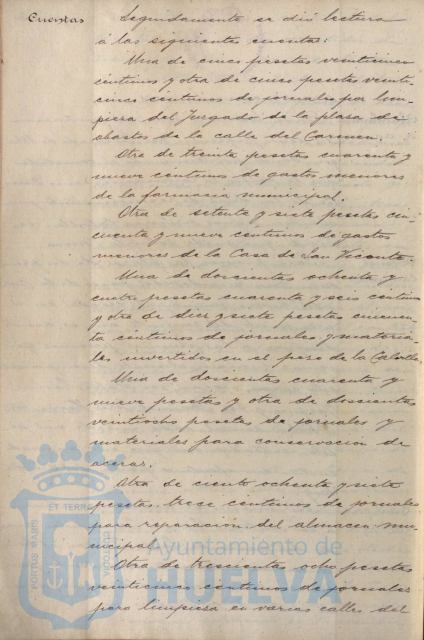 Cuentas
Seguidamente se dió lectura
á las siguientes cuentas:
Una de cinco pesetas veinticinco
céntimos y otra de cinco pesetas veinti-
cinco céntimos de jornales por lim-
pieza del Juzgado de la plaza de
abastos de la calle del Carmen.
Otra de treinta pesetas cuarenta y
nueve céntimos de gastos menores
de la farmacia municipal.
Otra de setenta y siete pesetas cin-
cuenta y nueve céntimos de gastos
menores de la Casa de San Vicente.
Una de doscientas ochenta y
cuatro pesetas cuarenta y seis céntimos
y otra de diez y siete pesetas cincuen-
ta céntimos de jornales y materia-
les invertidos en el paseo de la
Una de doscientas cuarenta y
nueve pesetas y otra de doscientas
veintiocho pesetas de jornales y
materiales para conservación de
aceras.
Otra de ciento ochenta y siete
pesetas trece céntimos de jornales
para reparación del almacen mu-
nicipal.
Otra de trescientas ocho pesetas
veinticinco céntimos de jornales
para limpieza en varias calles del
PORTUS MARIS
ET TERRÆ
CUSTODIA
Ayuntamiento de
HUELVA